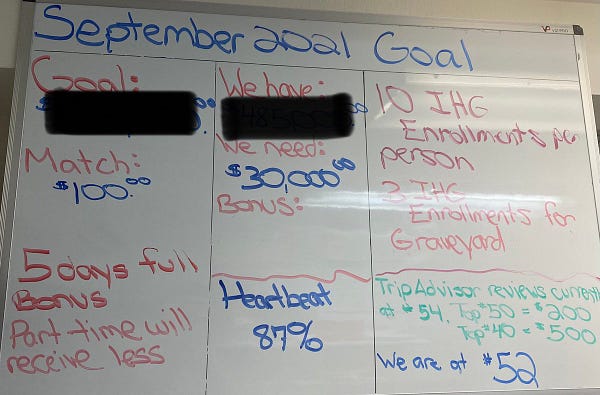 September 2021 Goal
Goal:
Match:
$100.00
5 days full
Bonus
Part-time will
receive less
We have:
We need:
$30,000.00
Bonus:
Heartbeat
87%
10 IHG
Enrollments per
person
3 IHG
Enrollments for
Graveyard
TripAdvisor reviews currently
at #54, Top #50 = $200
Top #40 = $500
We are at #52